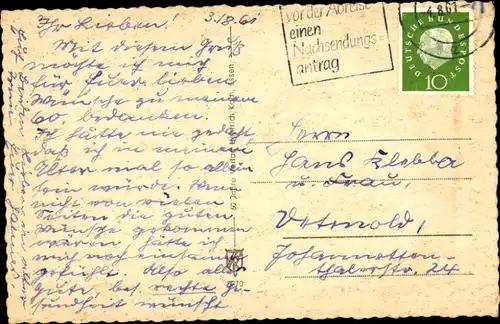 Ihr Lieben! 3.8.61
Mit diesem Gruß
möchte ich mich
für Euer lieben
Wünsche zu meinem
60. bedanken.
Ich hätte nie gedacht
daß ich in meinem
Alter mal so allein
sein würde. Wenn
nicht von vielen
Seiten die guten
Wünsche gekommen
wären, hätte ich
mich noch einsamer
gefühlt. Also alles
gute, bes. rechte Ge-
sundheit wünscht
vor der Abreise
einen
Nachsendungs=
antrag
4.8.61
DEUTSCHE BUNDESPOST
10
Herrn
Hans Klebba
u. Frau,
Detmold,
Johannetten-
thalerstr. 24